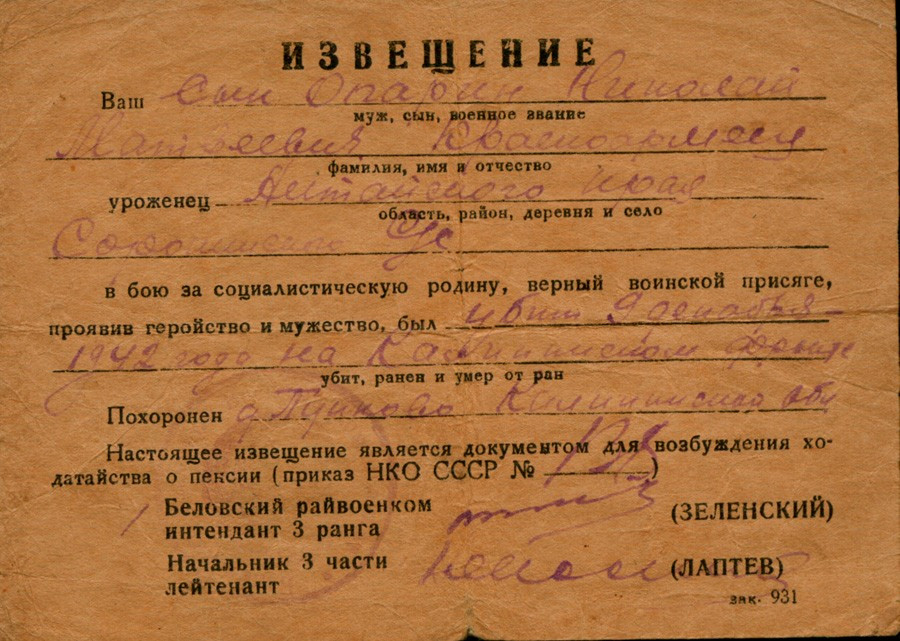 ИЗВЕЩЕНИЕ
Ваш сын Опарин Николай
муж, сын, военное звание
Матвеевич Красноармеец
фамилия, имя и отчество
уроженец Алтайского края
область, район, деревня и село
Сорокинского
в бою за социалистическую родину, верный воинской присяге,
проявив геройство и мужество, был убит 9 декабря
1942 года на Калининском фронте
убит, ранен и умер от ран
Похоронен д. Калининской обл
Настоящее извещение является документом для возбуждения хо-
датайства о пенсии (приказ НКО СССР № )
Беловский райвоенком
интендант 3 ранга (ЗЕЛЕНСКИЙ)
Начальник 3 части (ЛАПТЕВ)
лейтенант
зак. 931